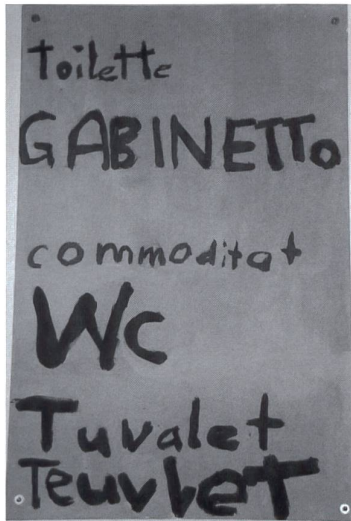 toilette
GABINETTo
commoditat
Wc
Tuvalet
Teuvlet